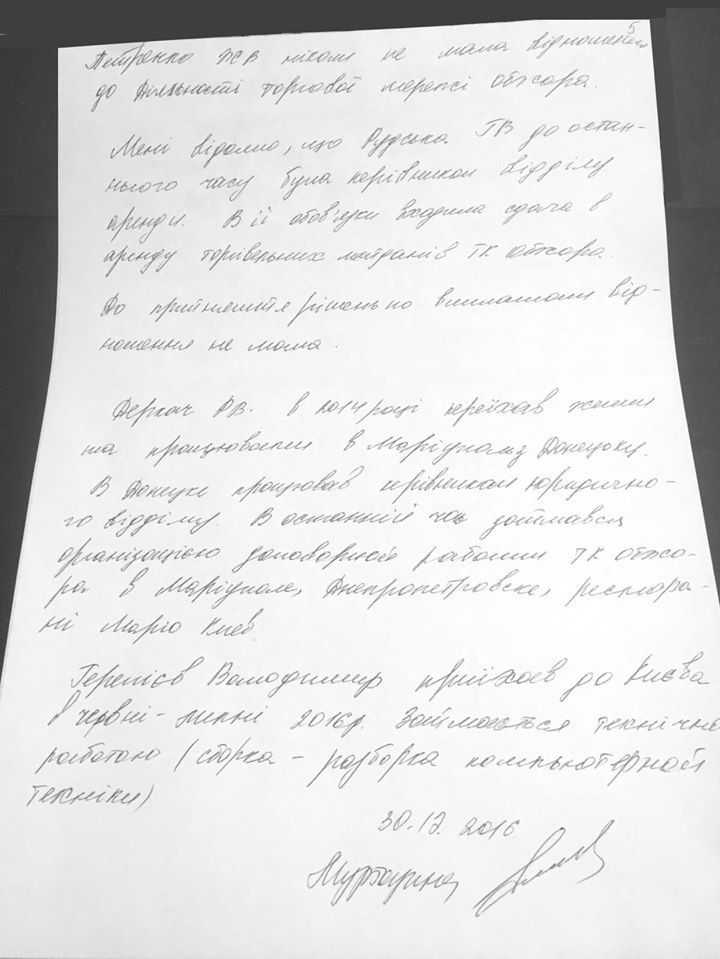 5
Петренко ніколи не мала відношення
до діяльності торгової мережі обжора.
Мені відомо, що Рудська ГВ до остан-
нього часу була керівником відділу
аренди. В її обов'язки входила сдача в
аренду торівельних майданів ТК обжора.
До прийняття рішень по виплатам від-
ношення не мала.
Деркач РВ. в 2014 році переїхав жити
та працювати в Маріуполь з Донецьку.
В Донецке працював керівником юридично-
го відділу. В останній час займався
організацією договорной работи ТК обжо-
ра в Маріуполе, Днепропетровске, рестора-
ні Маріо Киев.
Володимир приїхав до Києва
в червні-липні 2016р. Займається технічною
работою (сборка - разборка компьютерной
техніки)
30.12.2016